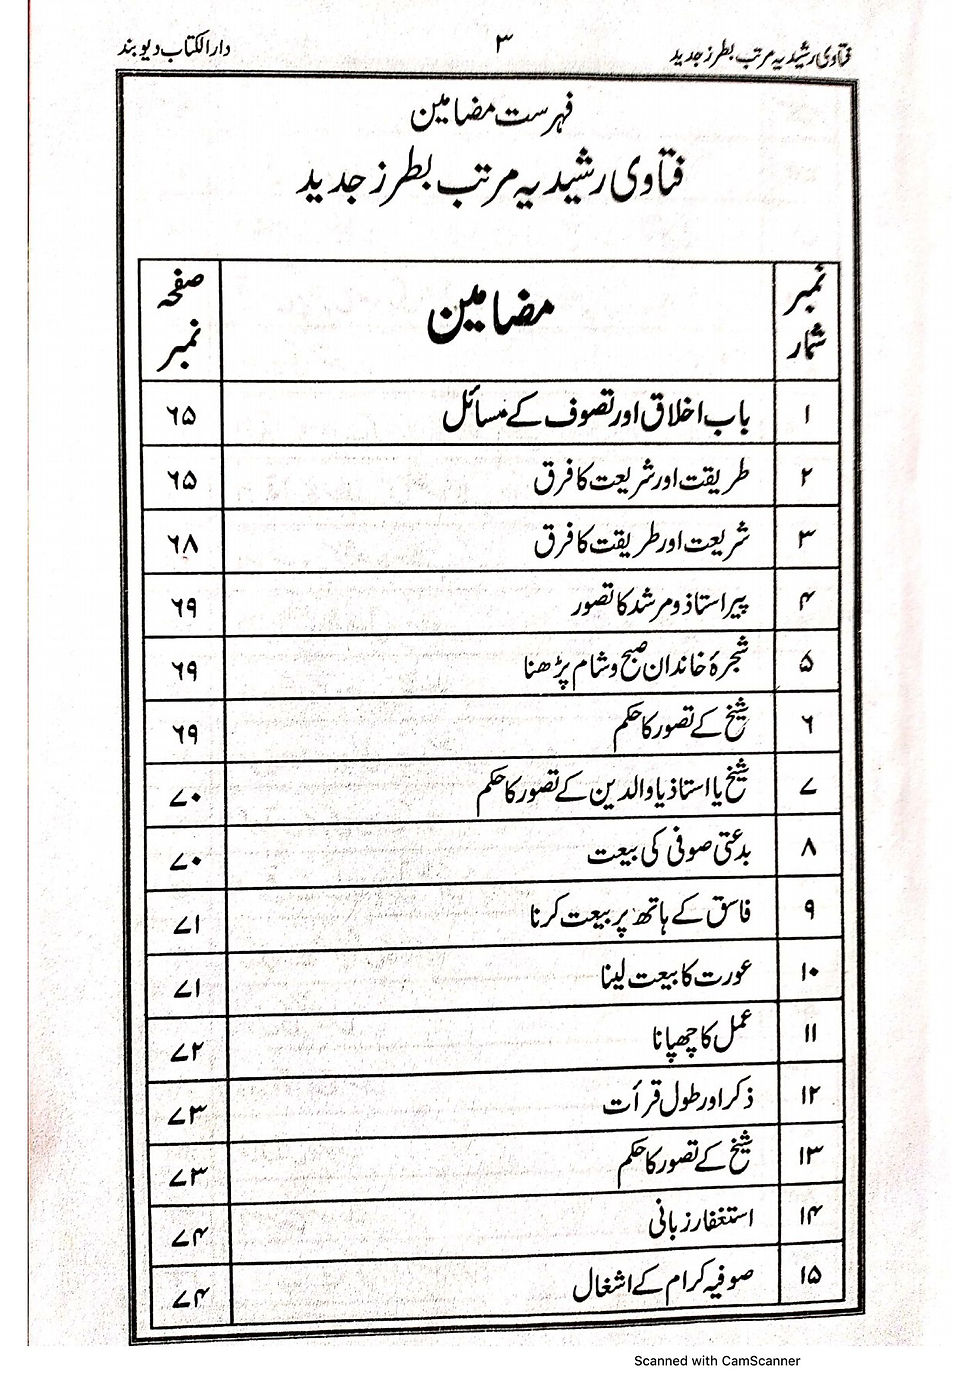 فتاوی رشیدیہ مرتب بطرز جدید ۳ دار الکتاب دیوبند
فہرست مضامین
فتاوی رشیدیہ مرتب بطرز جدید
نمبر شمار مضامین صفحہ نمبر
۱ باب اخلاق اور تصوف کے مسائل ۶۵
۲ طریقت اور شریعت کا فرق ۶۵
۳ شریعت اور طریقت کا فرق ۶۸
۴ پیر استاذ و مرشد کا تصور ۶۹
۵ شجرۂ خاندان صبح و شام پڑھنا ۶۹
۶ شیخ کے تصور کا حکم ۶۹
۷ شیخ یا استاذ یا والدین کے تصور کا حکم ۷۰
۸ بدعتی صوفی کی بیعت ۷۰
۹ فاسق کے ہاتھ پر بیعت کرنا ۷۱
۱۰ عورت کا بیعت لینا ۷۱
۱۱ عمل کا چھپانا ۷۲
۱۲ ذکر اور طول قرأت ۷۳
۱۳ شیخ کے تصور کا حکم ۷۳
۱۴ استغفار زبانی ۷۴
۱۵ صوفیہ کرام کے اشغال ۷۴
Scanned with CamScanner